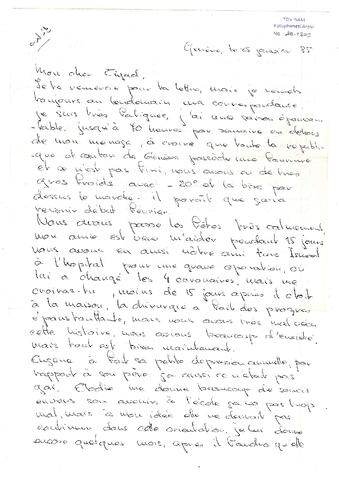 TDV İSAM
Kütüphanesi Arşivi
No
Genève, le 25 janvier 85
Mon cher
Je te remercie pour ta lettre, mais je remets
toujours au lendemain ma correspondance.
je suis très fatiguée, j'ai une saison épouvan-
table, jusqu'à 70 heures par semaine en dehors
de mon menage, à croire que toute la républi-
que et canton de Genève possède une fourrure
et ce n'est pas fini, nous avons eu de très
gros froids avec -20° et la bise par
dessus le marché. il parait que ça va
revenir début février.
Nous avons passé les fêtes très calmement,
mon amie est venue m'aider pendant 15 jours
nous avons eu aussi nôtre ami turc
à l'hopital pour une grave operation, on
lui a changé les 4 coronaires, mais me
croiras-tu, moins de 15 jours après il était
à la maison, la chirurgie a fait des progrès
époustouflants, mais nous avons très mal vécu
cette histoire, nous avions beaucoup d'anxiété,
mais tout est bien maintenant.
Eugène à fait sa petite depression annuelle, par
rapport à son père, ça aussi ce n'était pas
gai. Elodie me donne beaucoup de soucis
envers son avenir à l'école ça va pas trop
mal, mais à mon idée elle ne devrait pas
continuer dans cette orientation, je lui donne
encore quelques mois, après il faudra qu'elle